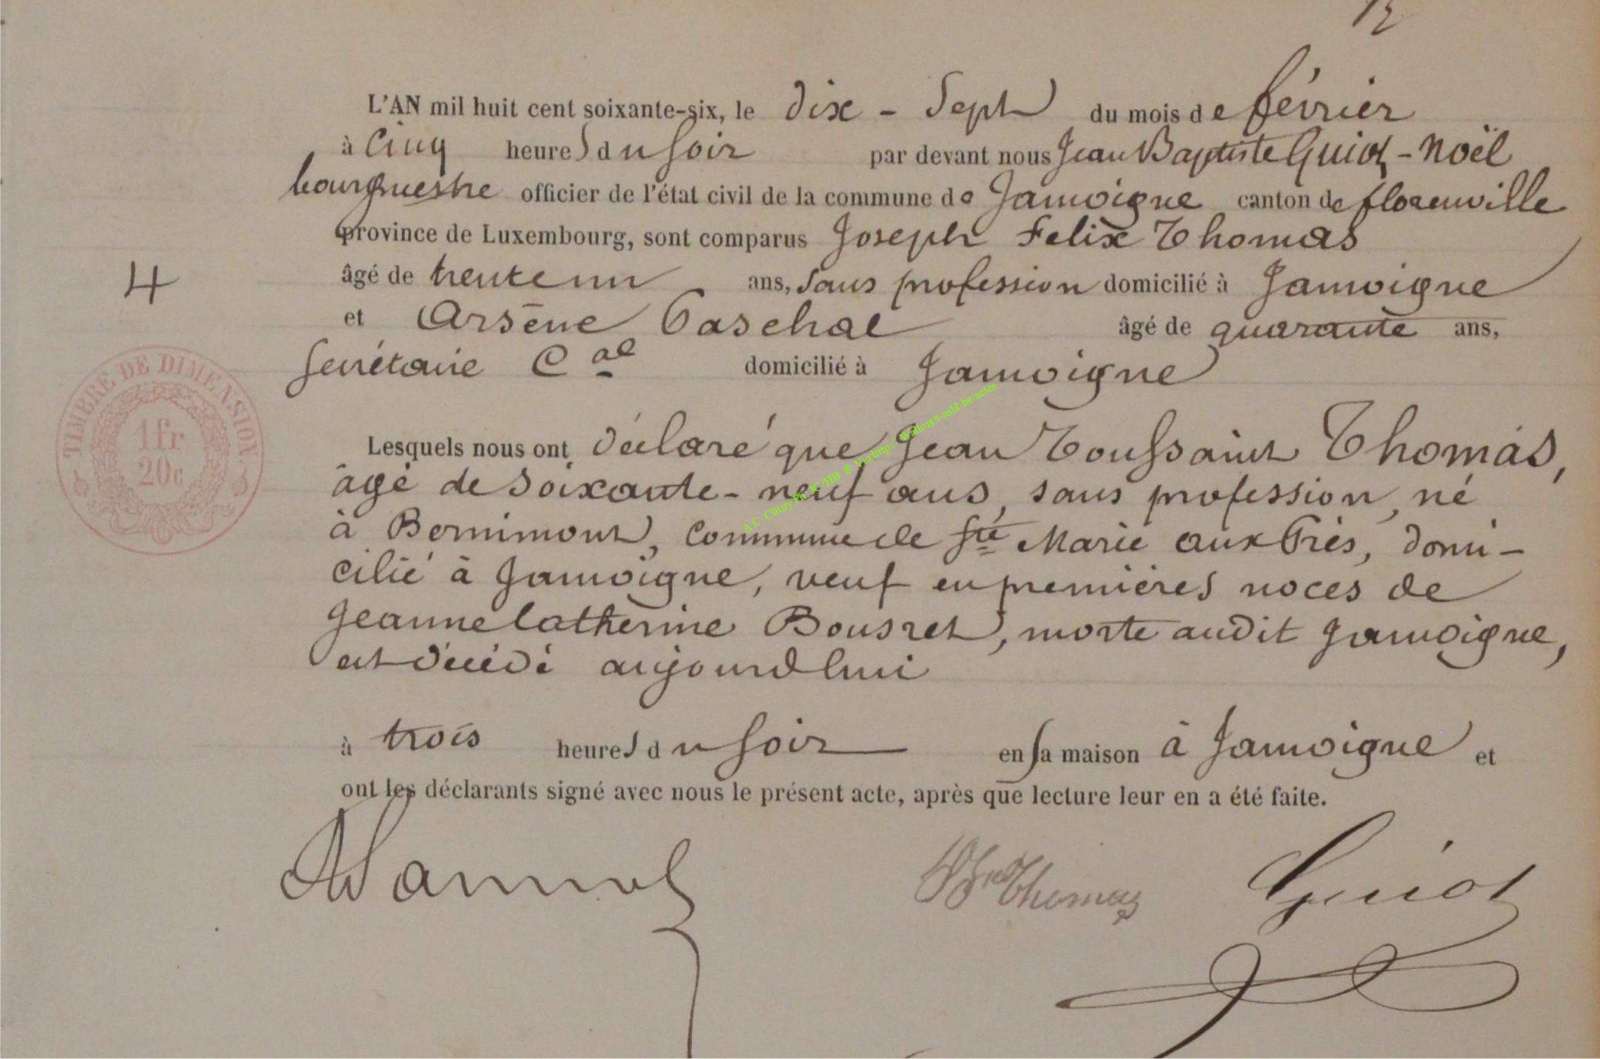 L'AN mil huit cent soixante-six, le dix-sept du mois de février
à cinq heures du soir par devant nous Jean Baptiste Guiot-Noël
bourgmestre officier de l'état civil de la commune de Jamoigne canton de florenville
province de Luxembourg, sont comparus Joseph Felix Thomas
âgé de trente un ans, sans profession domicilié à Jamoigne
et Arsène Paschal âgé de quarante ans,
secrétaire Cal domicilié à Jamoigne
4
TIMBRE DE DIMENSION
1fr
20c
Lesquels nous ont déclaré que Jean Toussaint Thomas,
âgé de soixante-neuf ans, sans profession, né
à Bernimont, commune de Ste Marie aux Près, domi-
cilié à Jamoigne, veuf en premières noces de
Jeanne Catherine Bousret, morte audit Jamoigne,
est décédé aujourd'hui
à trois heures du soir en sa maison à Jamoigne et
ont les déclarants signé avec nous le présent acte, après que lecture leur en a été faite.
Thomas Guiot